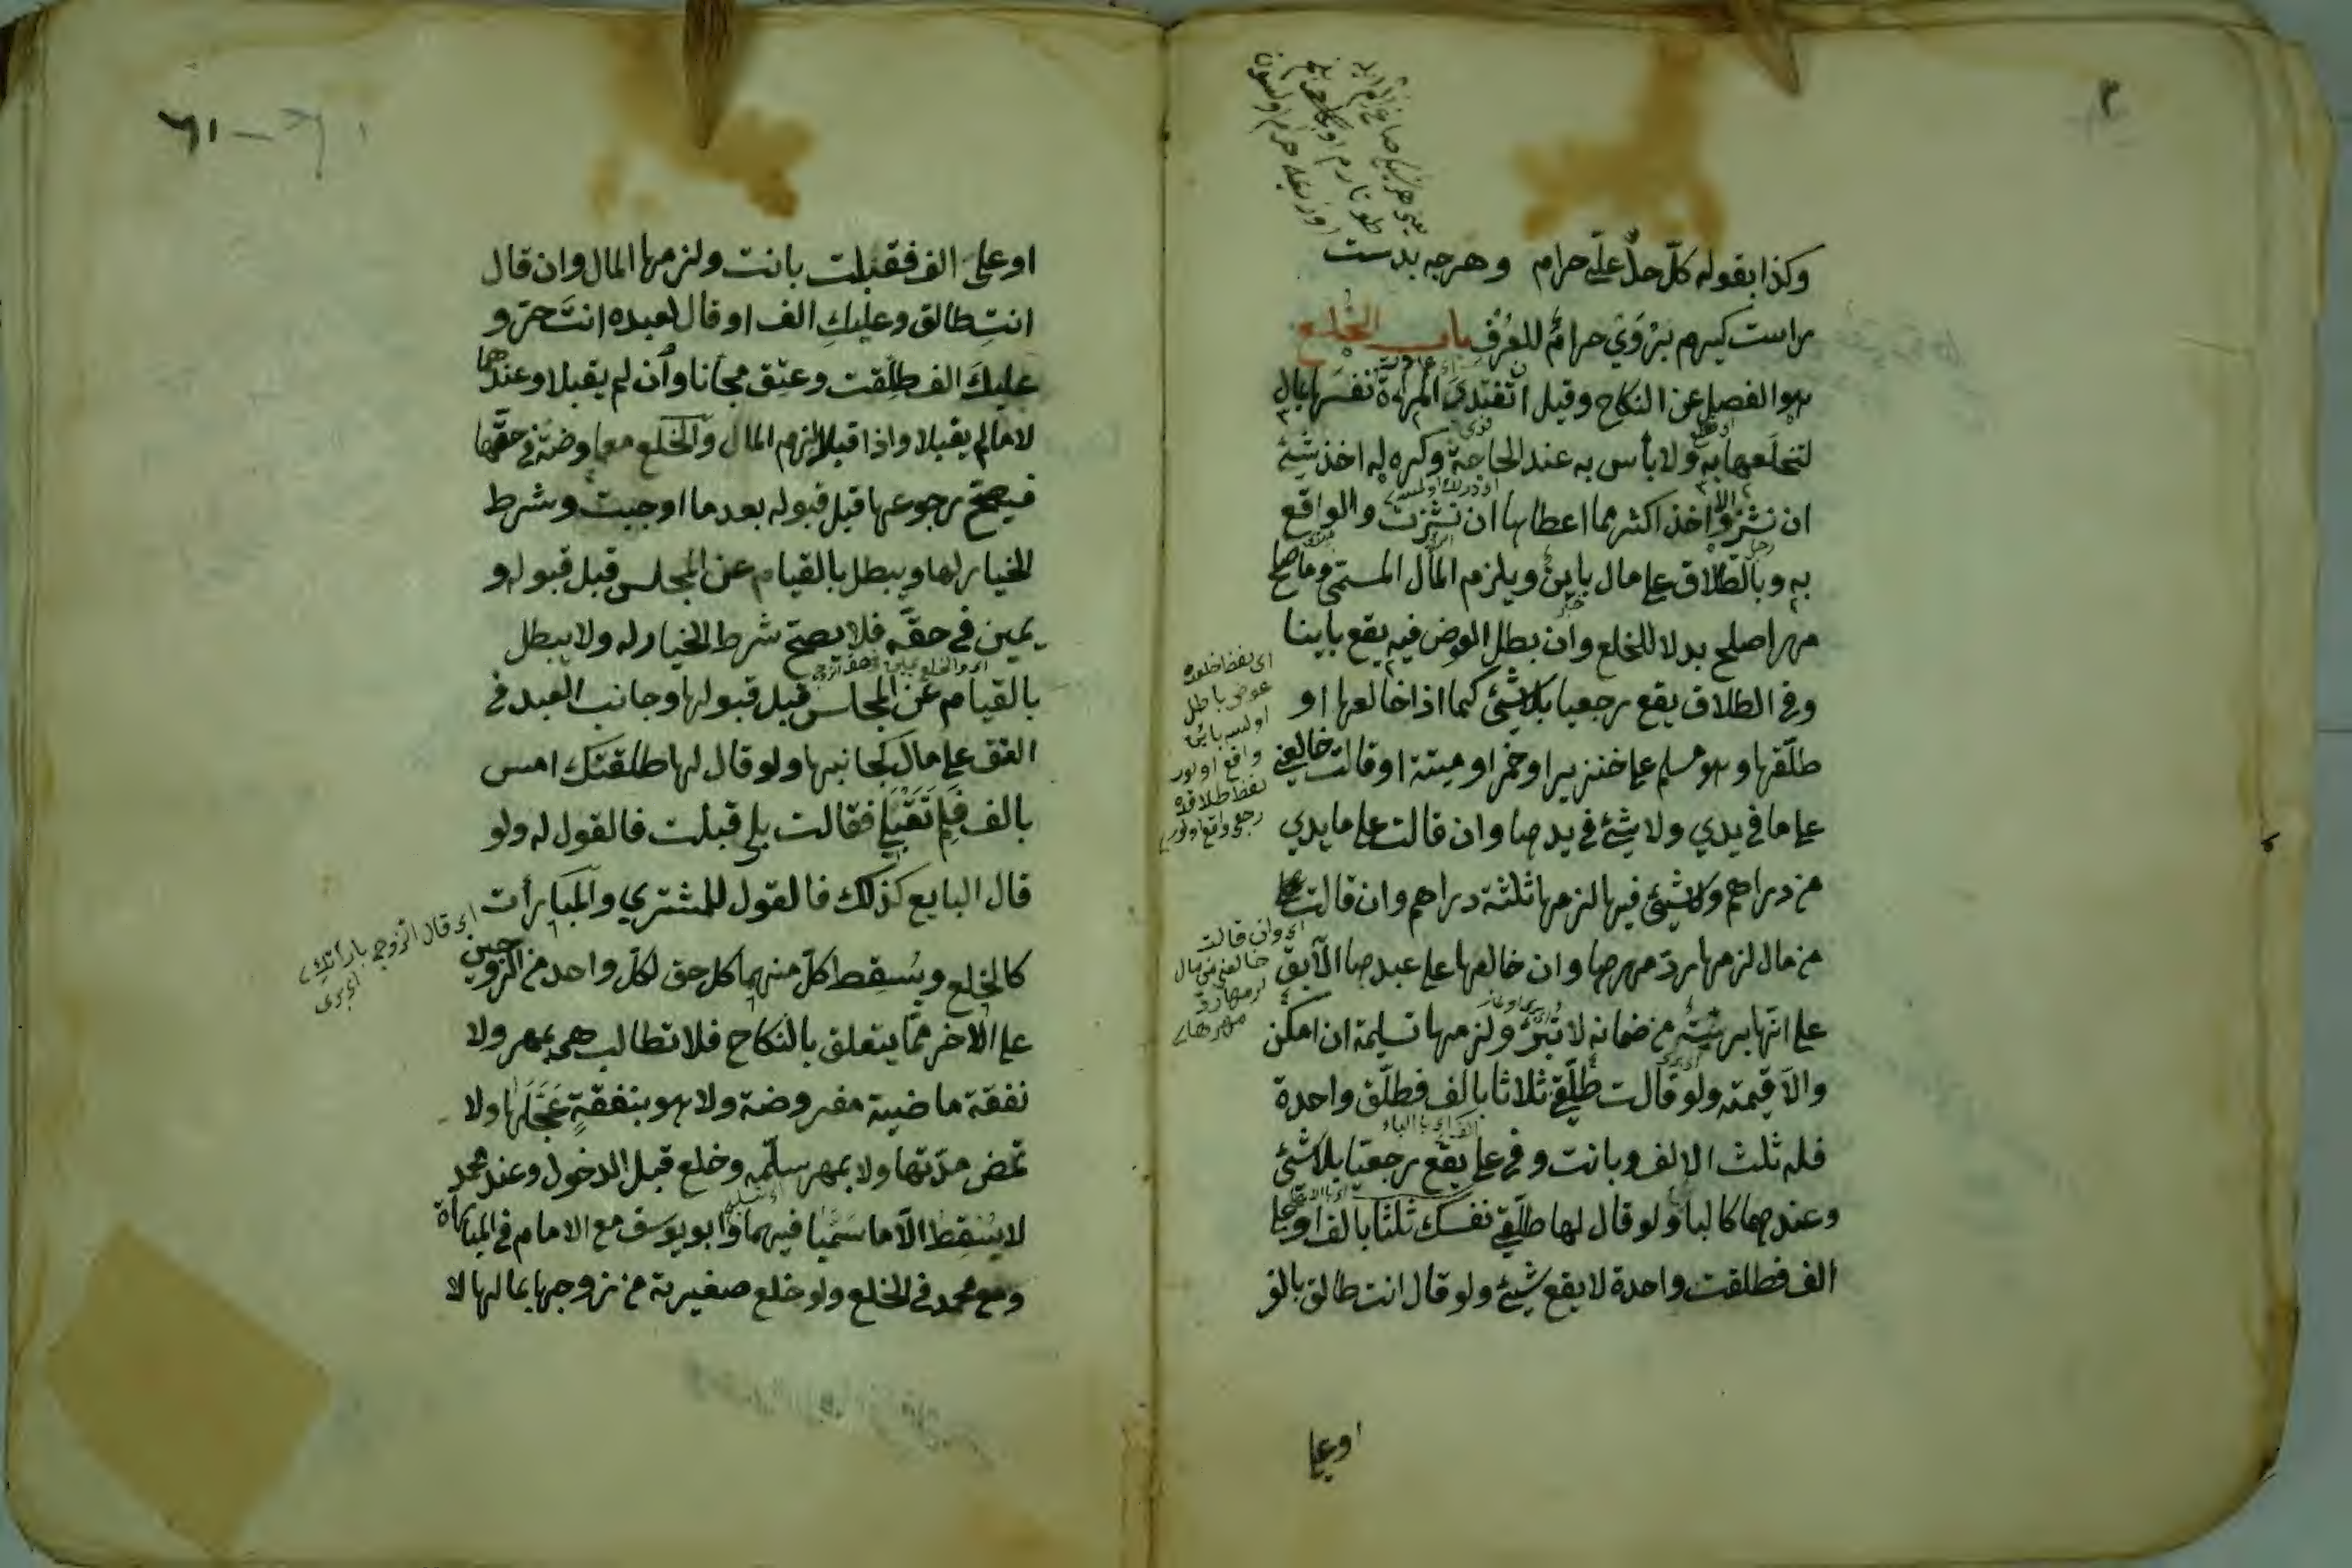 وكذا بقوله كلّ حلّ علىّ حرام وهرچه بدست
راست كيرم بروي حرام للعرف باب الخلع
هو الفصل عن النكاح وقيل ان تفتدى المرءة نفسها بمال
لتخلعها به ولا بأس به عند الحاجة وكره له اخذ شيئ
ان نشز واخذ اكثر مما اعطاها ان نشزت والواقع
به وبالطلاق على مال باين ويلزم المال المسمى وما صلح
مهرا صلح بدلا للخلع وان بطل العوض فيه يقع باينا
وفى الطلاق يقع رجعيا بلا شيئ كما اذا خالعها او
طلّقها وهو مسلم على خنزير او خمر او ميتة او قالت خالعني
على ما في يدي ولا شيئ في يدها وان قالت على ما يدي
من دراهم ولا شيئ فيها لزمها ثلثة دراهم وان قالت على
من مال لزمها ردّ مهرها وان خالعها على عبدها الآبق
على انها بريئة من ضمانه لا تبرّئ ولزمها تسليمه ان امكن
والّا قيمته ولو قالت طلّقني ثلاثا بالف فطلّق واحدة
فله ثلث الالف وبانت وفي على يقع رجعيا بلا شيئ
وعندهما كالباء ولو قال لها طلّقي نفسك ثلثا بالف او على
الف فطلقت واحدة لا يقع شيئ ولو قال انت طالق بالف
او على
اى وان قالت
خالعنى من مال
لزمها ردّ
مهرها
او على الف فقبلت بانت ولزمها المال وان قال
انتِ طالق وعليكِ الف او قال لعبده انتَ حرّ و
عليكَ الف طلّقت وعتق مجانا وان لم يقبلا وعندهما
لا ما لم يقبلا واذا قبلا لزم المال والخلع معاوضة في حقّها
فيصحّ رجوعها قبل قبوله بعد ما اوجبت وشرط
الخيار لها ويبطل بالقيام عن المجلس قبل قبوله و
يمين في حقّه فلا يصحّ شرط الخيار له ولا يبطل
اى والخلع يمين في حق الزوج
بالقيام عن المجلس قبل قبولها وجانب العبد في
العتق على مال كجانبها ولو قال لها طلقتك امس
بالف فلم تقبلي فقالت بلى قبلت فالقول له ولو
قال البايع كذلك فالقول للمشتري والمبارأت
كالخلع ويُسقِط كلّ منهما كل حق لكلّ واحد من الزوجين
على الآخر ممّا يتعلق بالنكاح فلا تطالب هي بمهر ولا
نفقة ماضية مفروضة ولا هو بنفقةٍ عَجَّلَها ولا
تمض مدّتها ولا بمهر سلّمه وخلع قبل الدخول وعند محمد
لا يُسقِط الّا ما سَمَّيا فيهما وابو يوسف مع الامام في المبارأة
ومع محمد في الخلع ولو خلع صغيرته من زوجها بمالها لا
اى قال الزوج بارأتك